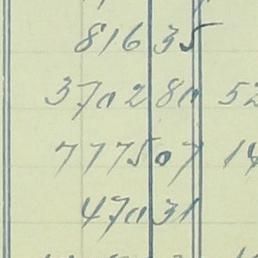 816 35
3702 80 52
7775 07 14
470 31